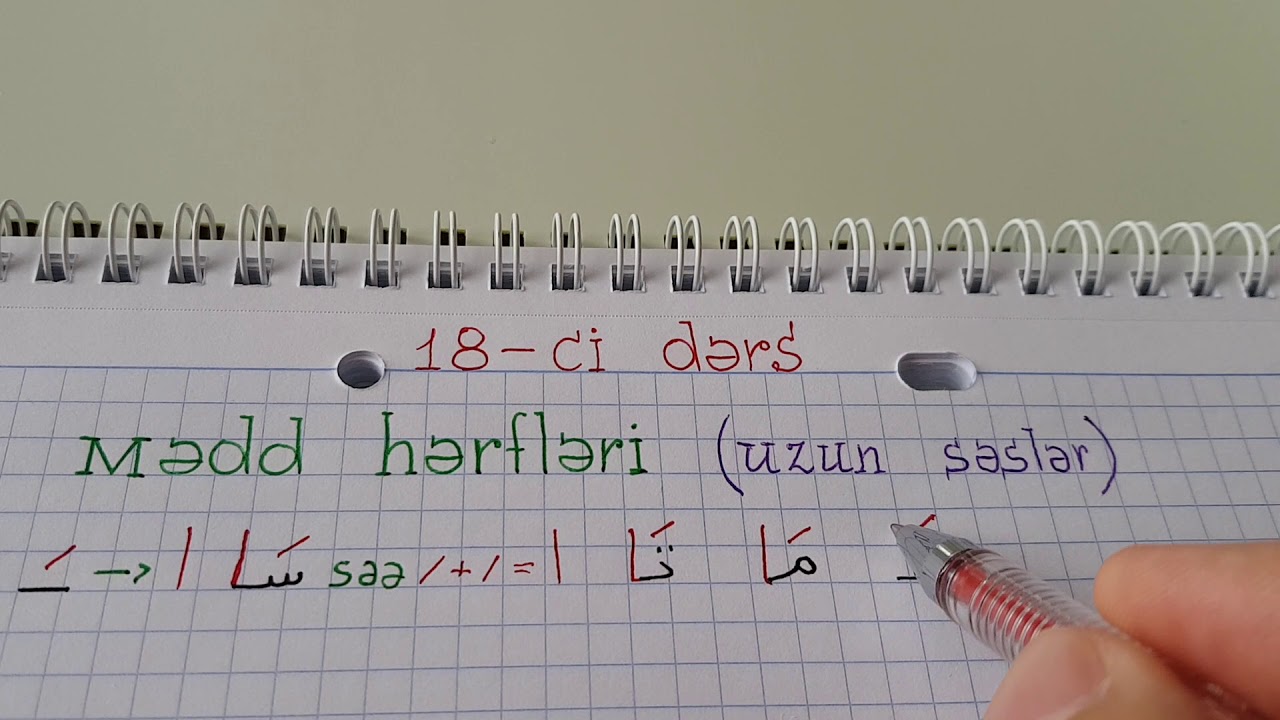 18-ci dərs
Mədd hərfləri (uzun səslər)
ـَ → ا سَا səə / + / = ا تَا مَا